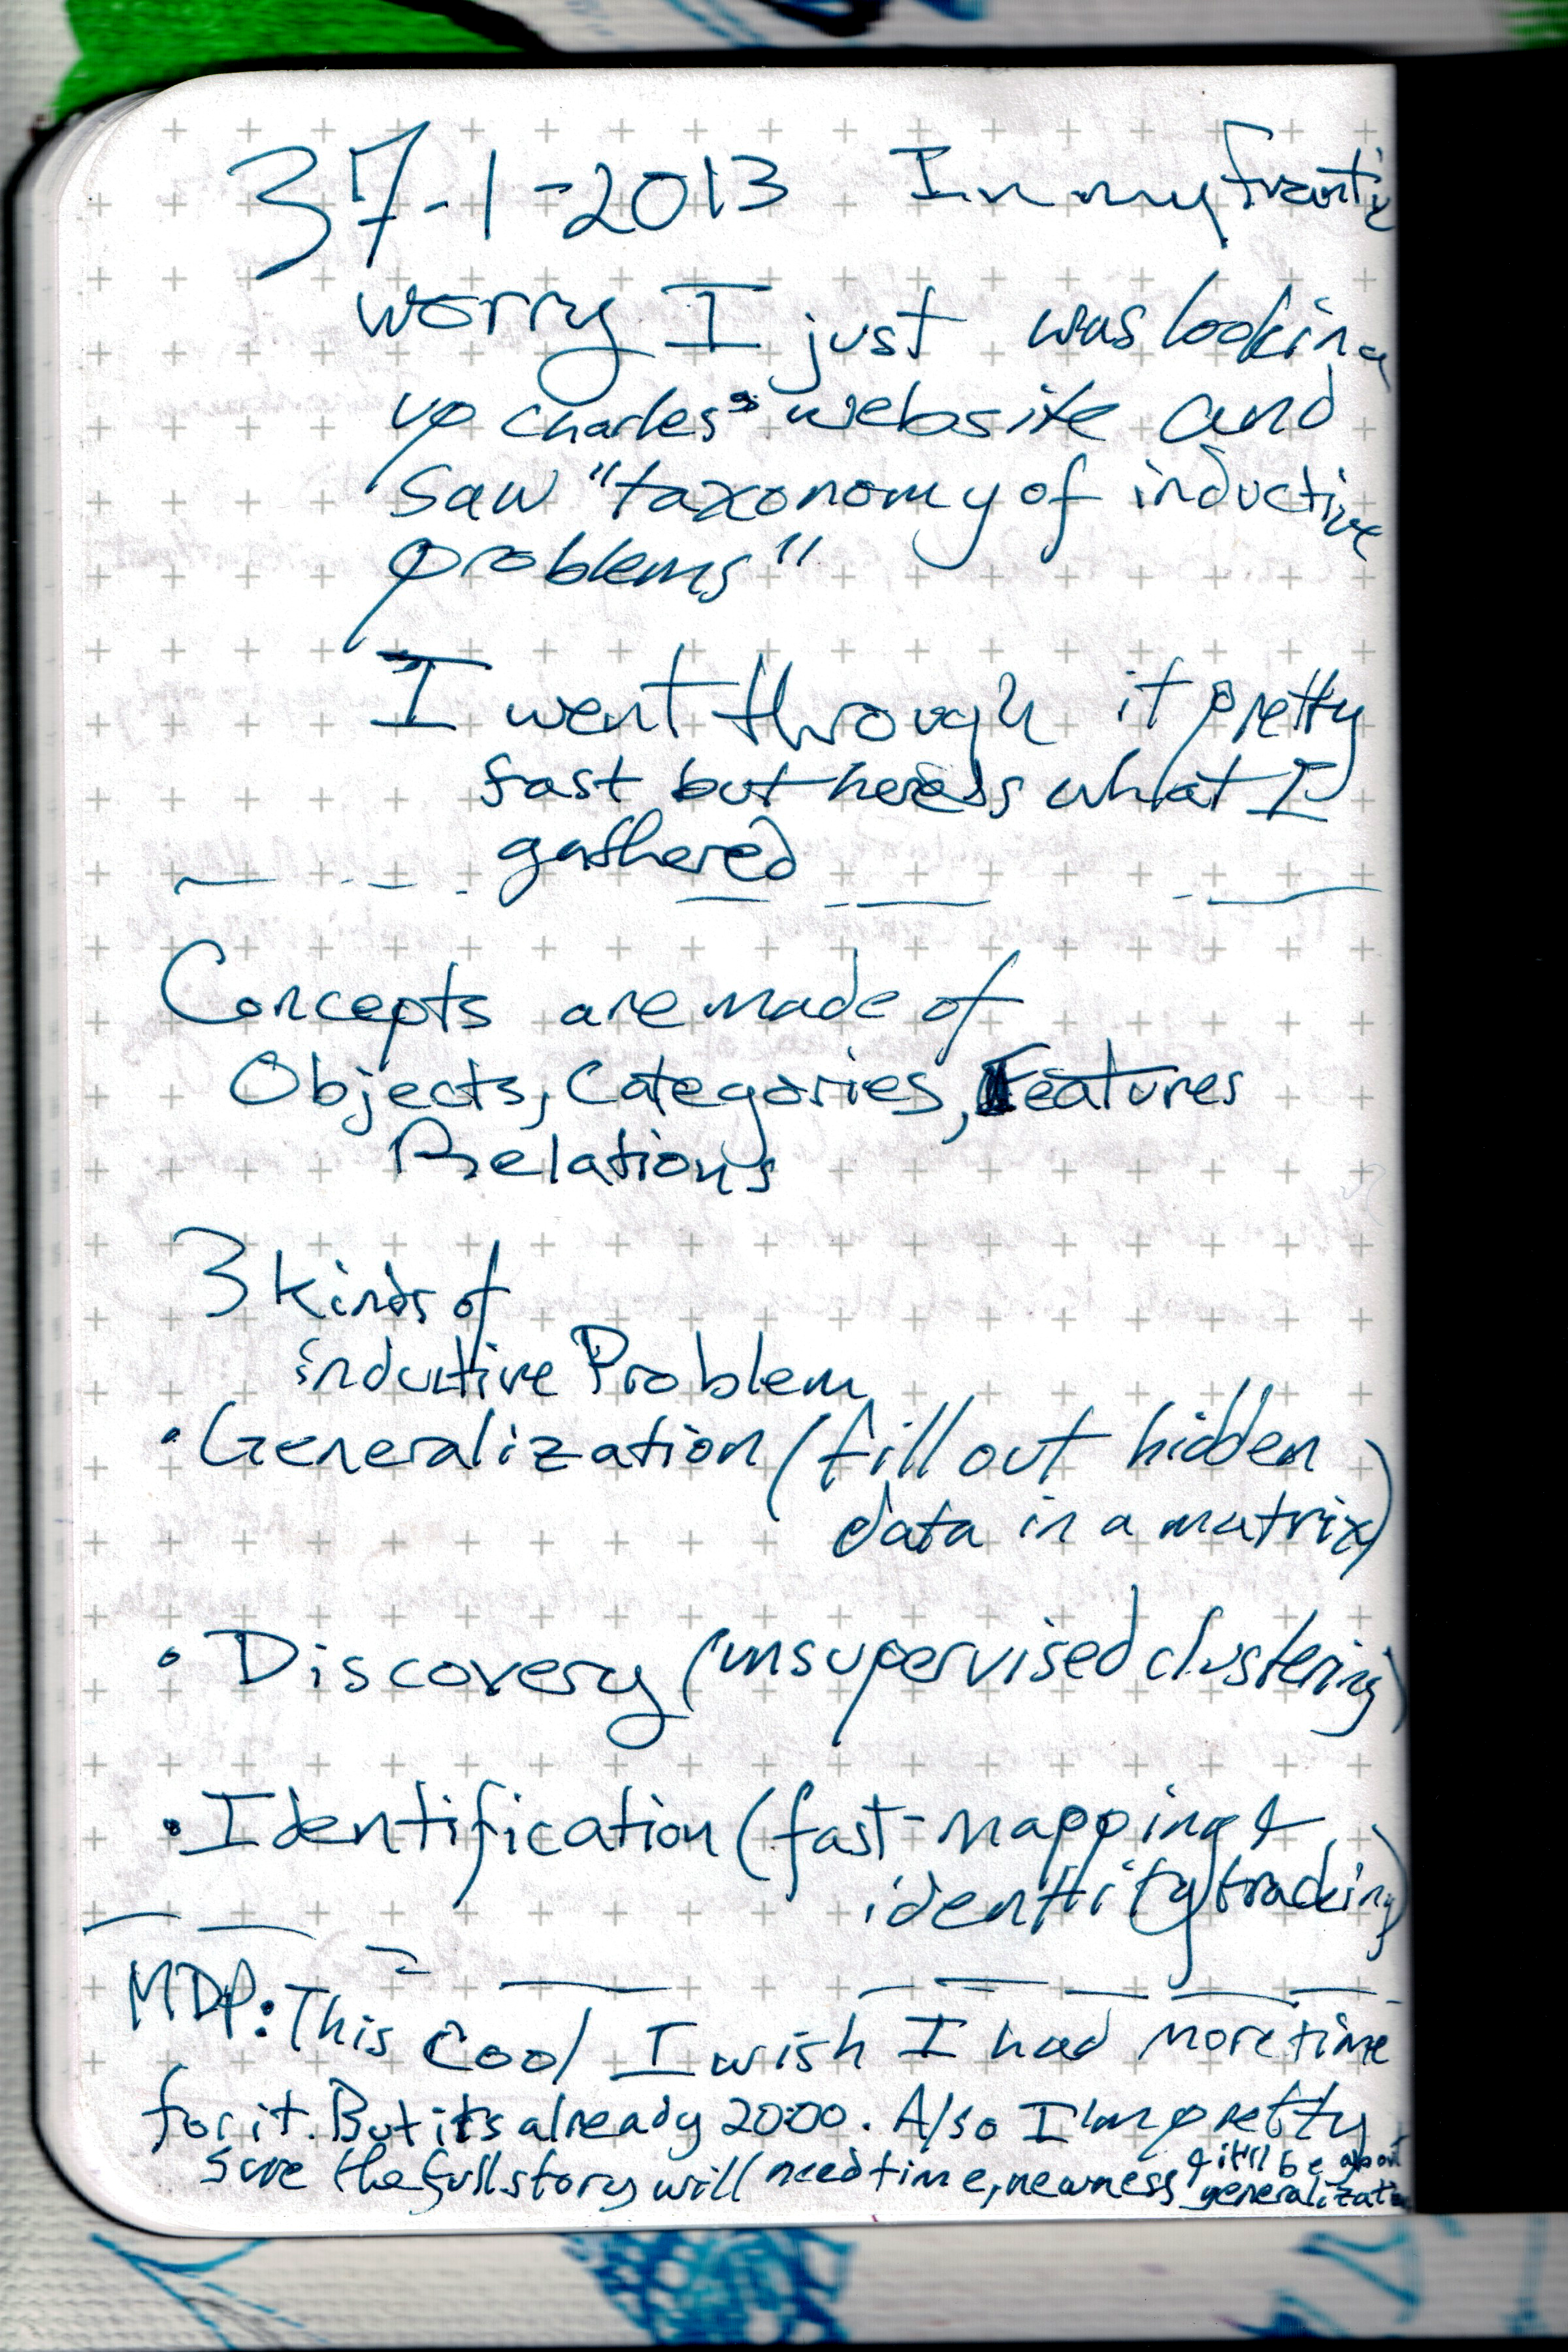 37-1-2013 In my frantic
worry I just was looking
up Charles' website and
saw "taxonomy of inductive
problems"
I went through it pretty
fast but here's what I
gathered
Concepts are made of
Objects, Categories, Features
Relations
3 kinds of
inductive Problem
• Generalization (fill out hidden
data in a matrix)
• Discovery (unsupervised clustering)
• Identification (fast-mapping &
identity tracking)
MDP: This Cool I wish I had more time
for it. But it's already 20:00. Also I'm pretty
sure the full story will need time, newness & it'll be about
generalization